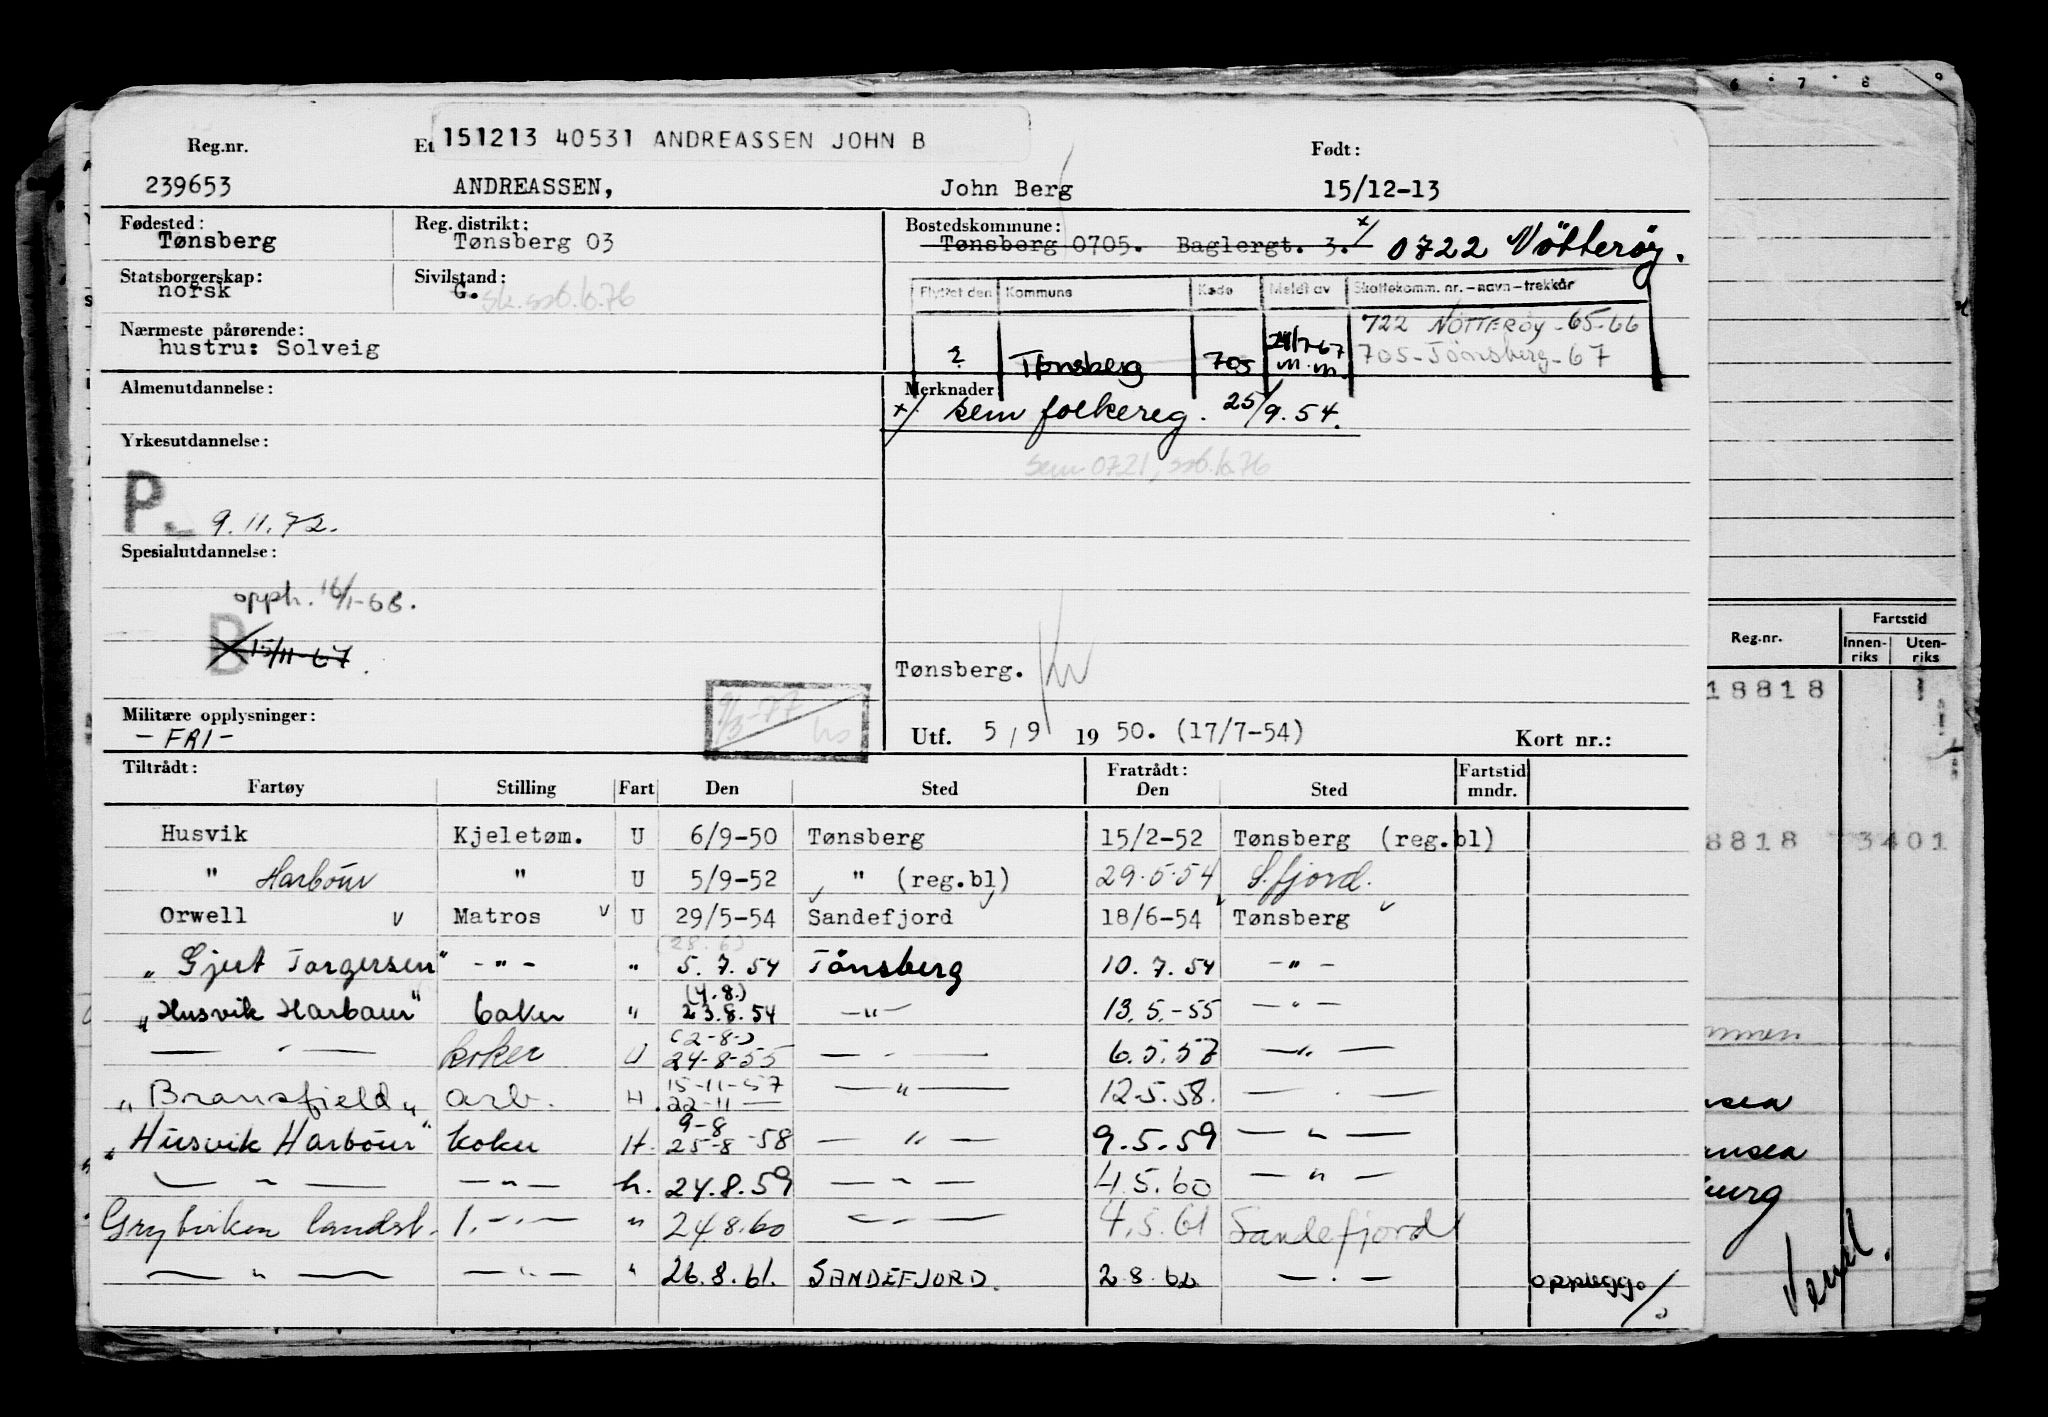 6 7 8 9
151213 40531 ANDREASSEN JOHN B
Reg.nr. Et Født:
239653 ANDREASSEN, John Berg 15/12-13
Fødested: Reg. distrikt: Bostedskommune:
Tønsberg Tønsberg 03 Tønsberg 0705. Baglergt. 3. x/ 0722 Nötteröy.
Statsborgerskap: Sivilstand:
norsk G. sk.ssb.b.76
Flyttet den Kommune Kode Meldt av Skattekomm. nr. - navn - trekkår
Nærmeste pårørende: 722 NÖTTERÖY - 65-66
hustru: Solveig ? Tønsberg 705 m.m. 705 - Tönsberg - 67
Almenutdannelse: Merknader
x/ Sem folkereg. 25/9.54.
Yrkesutdannelse:
Sem 0721, ssb.b.76
P. 9.11.72.
Spesialutdannelse: Reg.nr. Fartstid
Innen-riks Uten-riks
opph. 16/1-68.
B 15/11-67.
Tønsberg.
18818 1
Militære opplysninger: 9/3-77
- FRI - Utf. 5/9 1950. (17/7-54) Kort nr.:
Tiltrådt: Fratrådt: Fartstid
Fartøy Stilling Fart Den Sted Den Sted mndr.
Husvik Kjeletøm. U 6/9-50 Tønsberg 15/2-52 Tønsberg (reg.bl)
8818 3401
" Harbour " U 5/9-52 " (reg.bl) 29.5.54 S.fjord.
Orwell v Matros v U 29/5-54 Sandefjord 18/6-54 Tønsberg v
(28.6)
"Gjert Torgersen" -"- " 5.7.54 Tönsberg 10.7.54 -"-
(4.8.)
"Husvik Harbour" koker " 23.8.54 -"- 13.5.-55 -"-
(2-8-)
-"- koker U 24-8-55 -"- 6.5.57 -"-
15-11-57
"Bransfield" arb. H. 22-11- -"- 12.5.58. -"-
9-8
"Husvik Harbour" koker H. 25-8-58 -"- 9.5.59 -"-
-"- -"- h. 24.8.59 -"- 4.5.60 -"-
Grytviken landst. 1. -"- " 24.8.60 -"- 4.5.61 Sandefjord
-"- -"- " 26.8.61. SANDEFJORD. 2.8.62 -"-